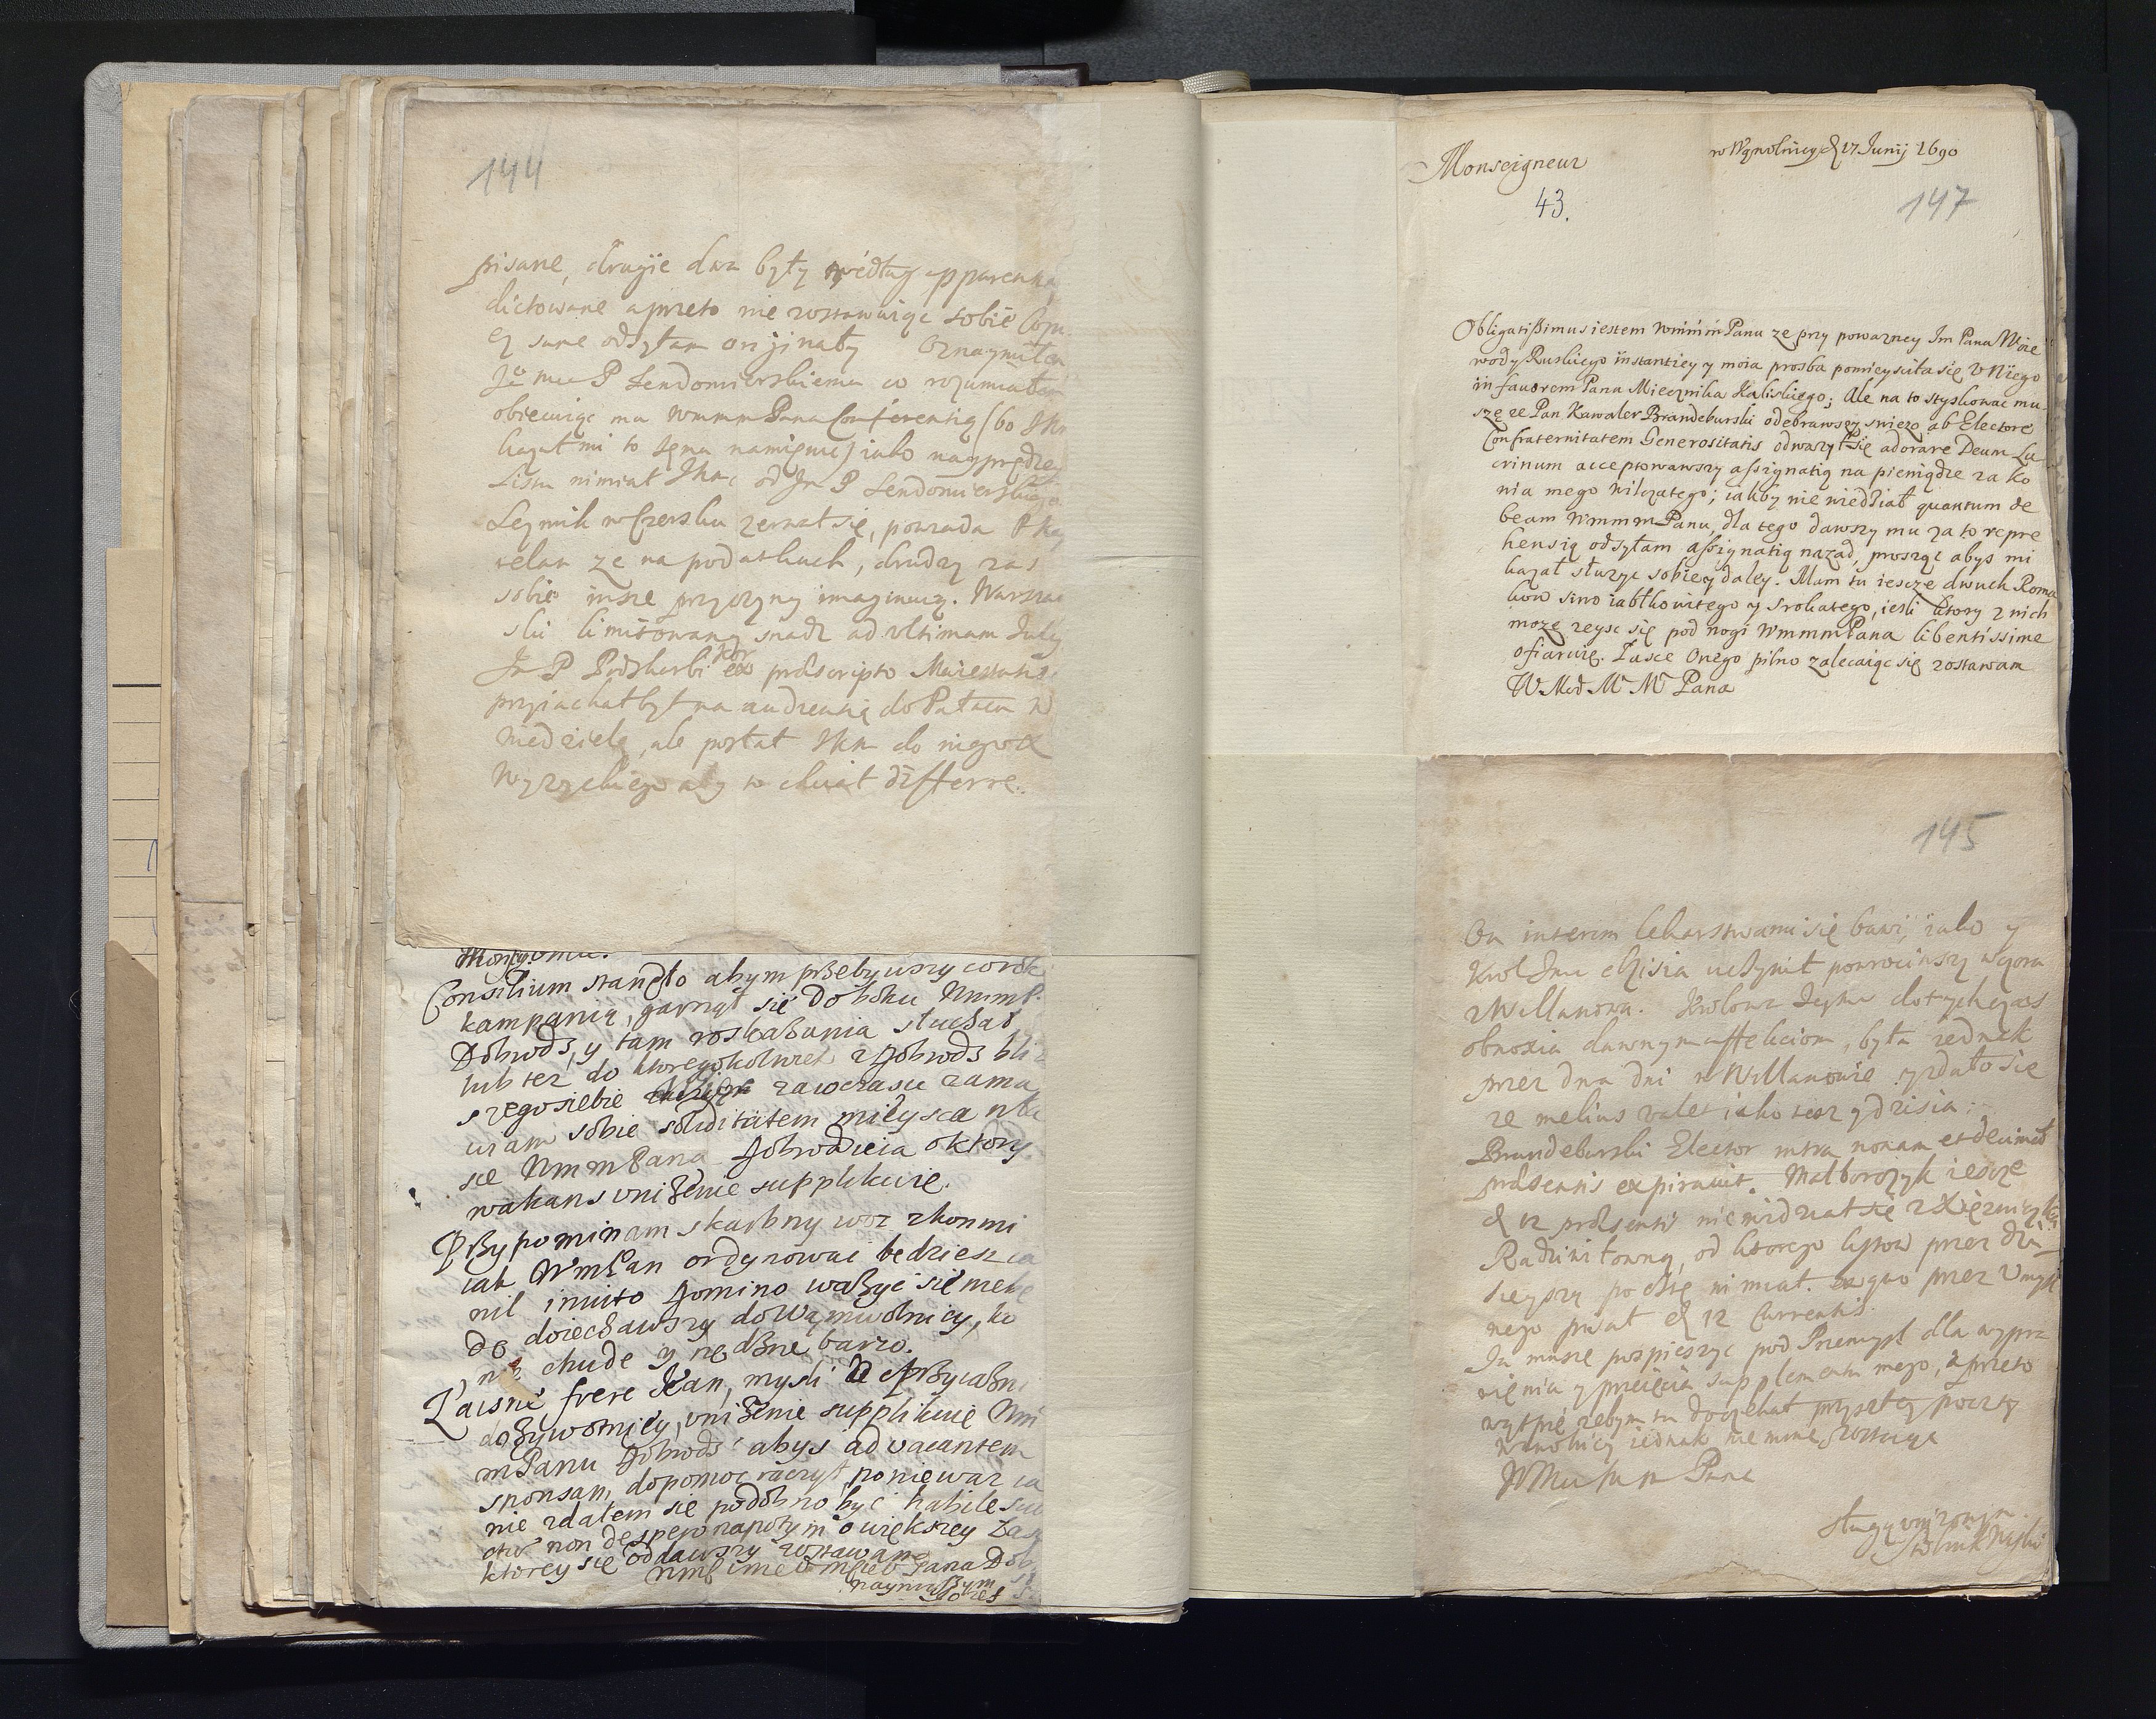 144
pisane, drugie dwa były według apparentią
dictowane a przeto nie zostawuiąc sobie Copi
ey same odsyłam originały Oznaymiłem
Je mci P Sendomirskiemu co rozumiałem
obiecuiąc ma Wmmm Pana Conferentią (bo JKm
kazał mi to Jemu namienić) iako nayprędzey
Listu nimiał JKmc od Jm P Sendomierskiego
Seymik w Czersku zerwał się, powiada
ze na podatkach, drudzy zas
sobie insze przyczyny imaginuią. Warszaw
ski limitowany snadz ad ultimam July
Jm P Podskarbi ex præscripto Maiestatis
przyiachał był na audientią do Pałacu w
Niedzielę, ale posłał JKm do niego
Wyrzyckiego aby to chciał differre.
Consilium stanęło abym przebywszy
kampanią, garnął się do boku Wmmm P.
Dobrods, y tam roskazania słuchał
lub tez do ktoregokolwiek z Dobrods bli
szego siebie zawczasu zama
wiam sobie soliditatem mieysca
sce WmmPana Dobrodzieia o ktory
wakans unizenie supplikuię.
Przypominam skarbny woz z konmi
iak WmPan ordynować będziesz
nil inuito Domino wazyć się
do doiechawszy do Wąmwolnicy, ko
nie chude y nędzne barzo.
frere Jean, mysli
dozywotniey, unizenie supplikuię Wm
mPanu Dobrods abys ad vacantem
sponsam dopomoc raczył, poniewaz ia
nie zdałem się podobno być habile
non despero napotym o większey
ktorey się oddawszy zostawam
Pana Dob
Monseigneur
w Wąwolnicy d 17 Junij 1690
43.
147
Obligatissimus iestem WmmmPanu ze przy powazney Jm Pana Woie
wody Ruskiego instantiey y moia prosba pomieysciła się u Niego
in fauorem Pana Miecznika Kaliskiego; Ale na to styskować mu
szę ze Pan Kawaler Brandeburski odebrawszy swiezo ab Electore
Confraternitatem Generositatis odwazył się adorare Deum Lu
crinum acceptowawszy assignatią na pieniądze za ko
nia mego wilczatego; iakby nie wiedział quantum de
beam WmmmPanu, dla tego dawszy mu za to repre
hensią odsyłam assignatią nazad, prosząc abys mi
kazał słuzyc sobie y daley. Mam tu iescze dwuch Roma
kow sino iabłkowitego y srokatego, iesli ktory z nich
moze zeysc się pod nogi WmmmPana libentissime
ofiaruię. Łasce Onego pilno zalecaiąc się zostawam
W Mcd M M Pana
145
On interim lekarstwami się bawi, iako y
Krol Jmc dzisia uczynił powrociwszy wczora
z Willanowa. Krolowa Jeymc dotychczas
obnoxia dawnym affekciom, była iednak
przez dwa dni w Willanowie y zdało się
ze melius valet iako tesz y dzisia;
Brandeburski Elector intra nonam et decimam
præsentis expirauit. Malborczyk iescze
d 12 præsentis nie widział się z Xięzniczką
Radziwiłowną, od ktorego listow przez dzi
sieyszą pocztę nimiał. ex quo przez Umysl
nego pisał d 12 Currentis
Ja muszę pospieszyc pod Przemysl dla wypra
wienia y przeięcia supplementu mego, a przeto
wątpię zebym tu doczekał przyszłey poczty
iednak nie mnie, zostaię
W M m m m Pana
sługą unizonym